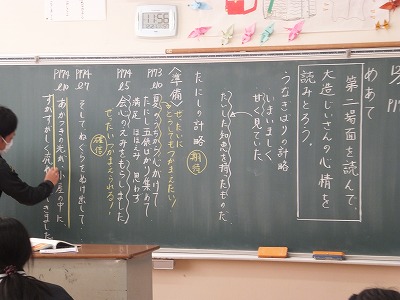 めあて
第二場面を読んで、
大造じいさんの心情を
読みとろう。
うなぎばりの計略
いまいましく
甘く見ていた
たいした知恵を持ったものだ
たにしの計略
〈準備〉
P173
l10
夏のうちから心がけて
たにし五俵ばかり集めて
期待
満足 ほほえみ 思わず
P174
l5
会心のえみをもらしました
ぜったいつかまえられるぞ!
確信
P174
l7
そしてねぐらをぬけ出して
P174
l10
あかつきの光が、小屋の中に
すがすがしく流れ
11:56